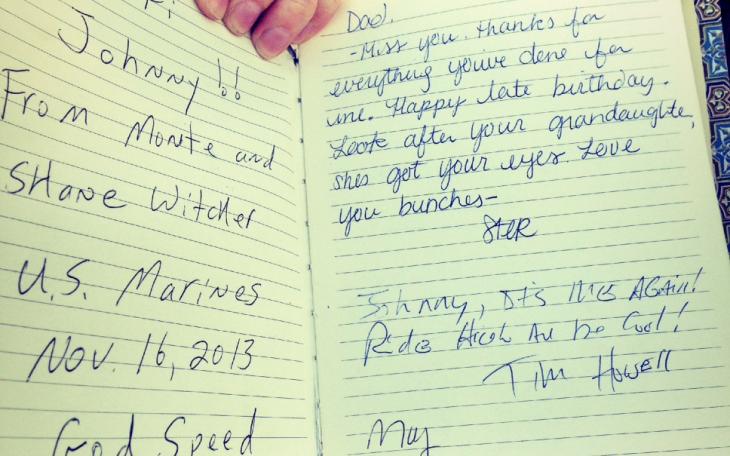 Hi
Johnny!!
From Monte and
Shane Witcher
U.S. Marines
Nov. 16, 2013
God Speed
Dad.
-Miss you. thanks for
everything you've done for
me. Happy late birthday.
Look after your grandaughte,
shes got your eyes. Love
you bunches-
Johnny, It's me AGAin!
Ride High An be Cool!
Tim Howell
May